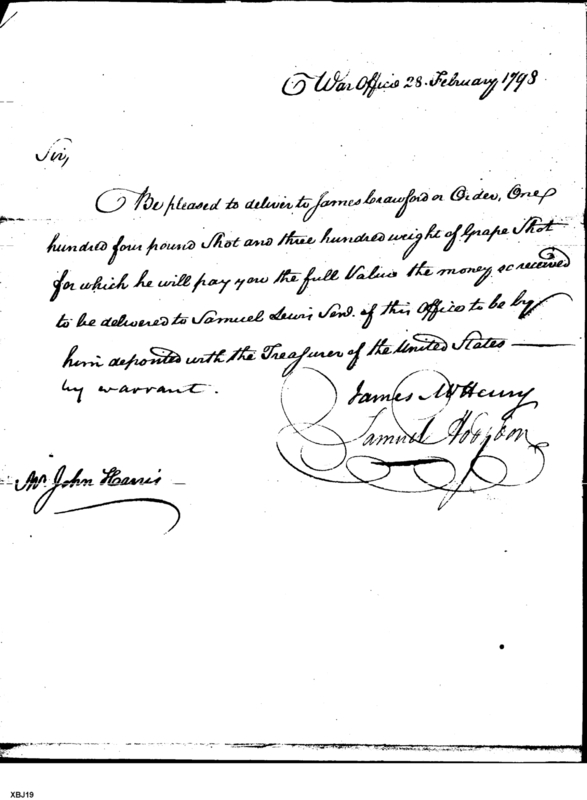 War Office 28. February 1798
Sir,
Be pleased to deliver to James Crawford or Order, One
hundred four pound Shot and three hundred weight of Grape Shot
for which he will pay you the full Value the money so received
to be delivered to Samuel Lewis Senr. of this Office to be by
him deposited with the Treasurer of the United States
by warrant.
James McHenry
Samuel Hodgdon
Mr. John Harris
XBJ19